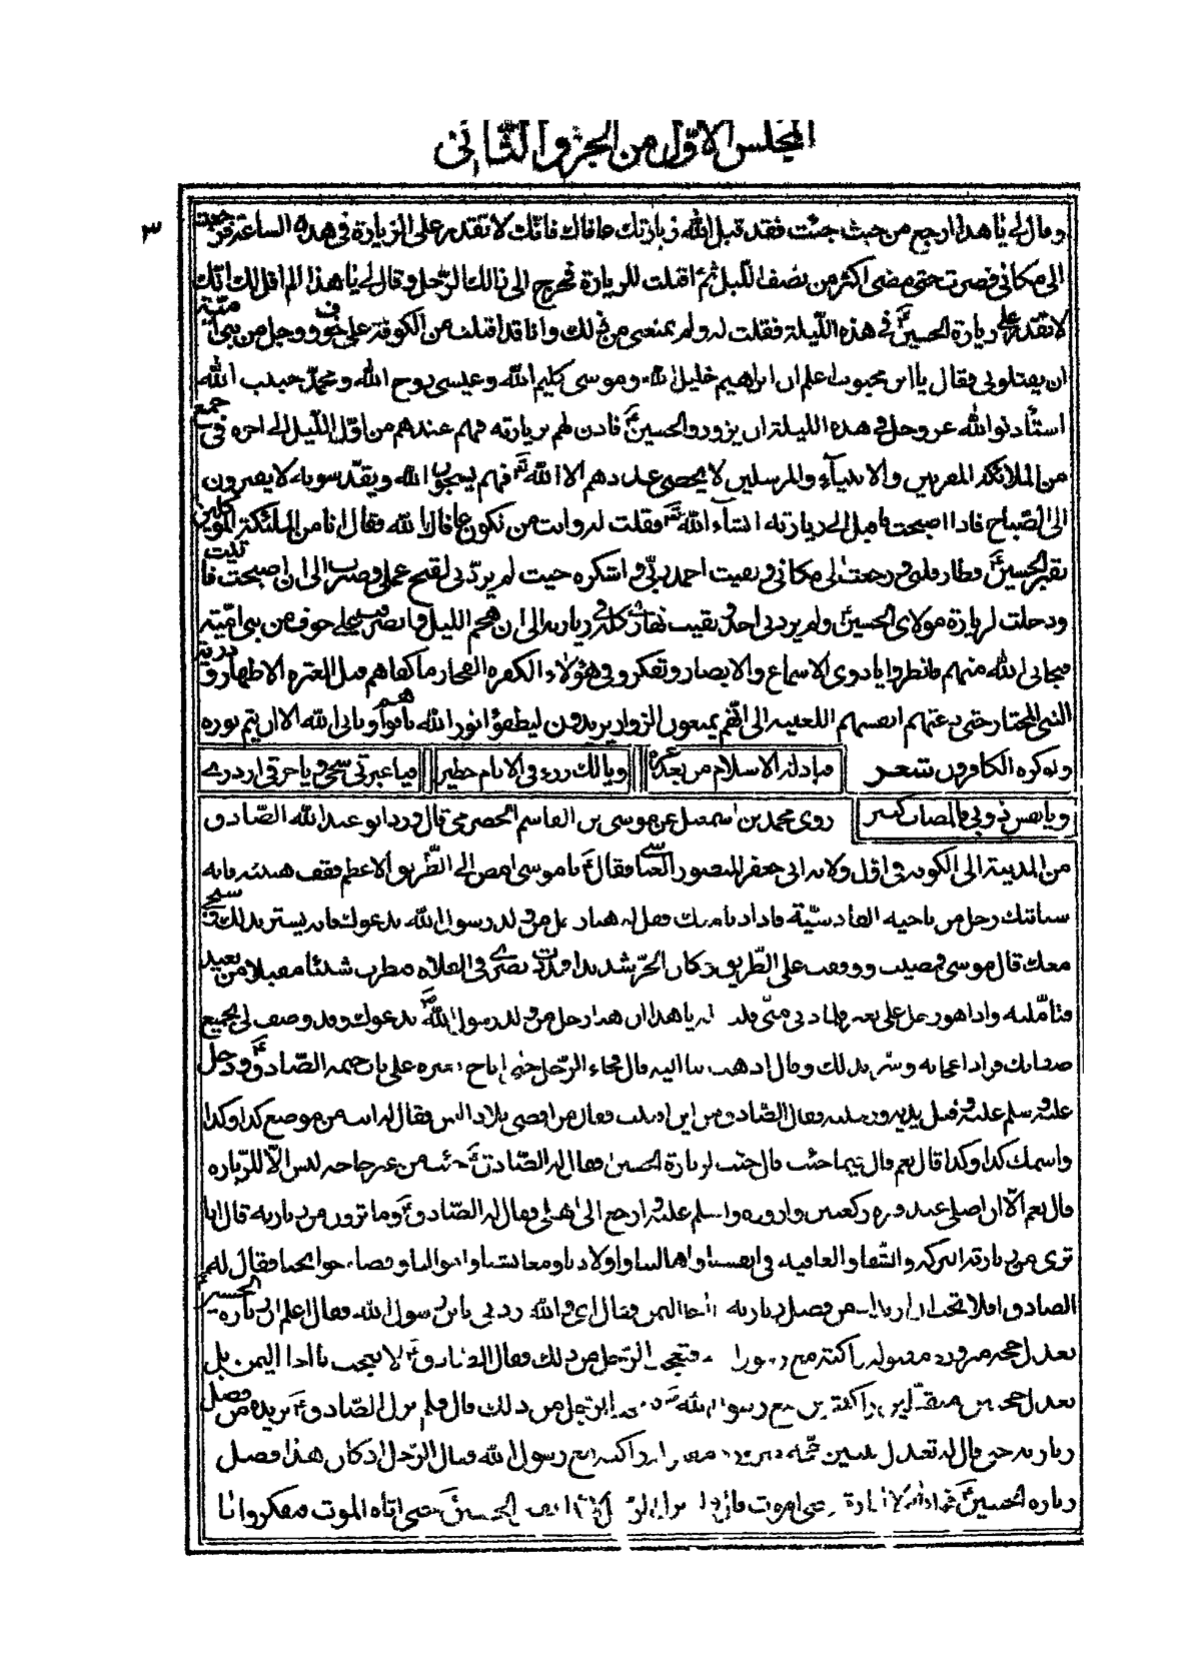 المجلس الاوّل من الجزو الثّاني
٣
وقال لي يا هذا ارجع من حيث جئت فقد قبل الله زيارتك عافاك الله فانّك لا تقدر على الزيارة في هذه الساعة فرجعت
الى مكاني فصبرت حتى مضى اكثر من نصف اللّيل ثمّ اقبلت للزيارة فخرج الى ذالك الرّجل وقال لي يا هذا الم اقل لك انّك
لا تقدر على زيارة الحسين ع في هذه اللّيلة فقلت له ولم تمنعني من ذلك وانا قد اقبلت من الكوفة على خوف ووجل من بني اميّة
ان يقتلوني فقال يا ابن محبوب اعلم ان ابراهيم خليل الله وموسى كليم الله وعيسى روح الله ومحمّد حبيب الله
استأذنوا الله عز وجل في هذه الليلة ان يزوروا الحسين ع فاذن لهم بزيارته فهم عندهم من اوّل اللّيل الى اخره في جمع
من الملائكة المقربين والانبيآء والمرسلين لا يحصى عددهم الا الله فهم يسبحون الله ويقدّسونه لا يفترون
الى الصّباح فاذا اصبحت فاقبل الى زيارته انشآء الله فقلت له وانت من تكون عافاك الله فقال انا من الملئكة الموكلين
بقبر الحسين ع فطار قلبي ورجعت الى مكاني وبقيت احمد ربّي واشكره حيث لم يردّني لقبح عملي وصبرت الى ان اصبحت فاتيت
ودخلت لزيارة مولاي الحسين ع ولم يردني احد وبقيت نهاري كله في زيارته الى ان هجم الليل وانصرفت على خوف من بني اميّة
فنجاني الله منهم فانظروا يا ذوي الاسماع والابصار وتفكروا في هؤلاء الكفرة الفجار ما كفاهم قتل العترة الاطهار وذرية
النبي المختار حتى دعتهم انفسهم اللعينه الى انّهم يمنعون الزوار يريدون ليطفؤا نور الله بافواههم ويابى الله الا ان يتم نوره
ولو كره الكافرون شعر فيا ذلة الاسلام من بعد عزه ويا لك رزء في الانام خطير فيا عبرتي سحي ويا حرقتي ازددي
ويا نفس ذوبي فالمصاب كبير روى محمد بن اسمعيل عن موسى بن القاسم الحضرمي قال ورد ابو عبد الله الصّادق
من المدينة الى الكوفه في اوّل ولاية ابي جعفر المنصور العباسي فقال ع يا موسى امض الى الطّريق الاعظم فقف هنيئة فانه
سياتيك رجل من ناحيه القادسيّة فاذا دنا منك فقل له هنا رجل من ولد رسول الله يدعوك فانه يستر بذلك وسيجئ
معك قال موسى فمضيت ووقفت على الطّريق وكان الحرّ شديدا ومددت بصري في الفلاه فنظرت شيئا مقبلا من بعيد
فتامّلته واذا هو رجل على بعير فلما دنى منّي قلت له يا هذا ان هنا رجل من ولد رسول الله يدعوك وقد وصفك لي بجميع
صفاتك
عليه وسلم عليه وقبل يديه ورجليه فقال الصّادق من اين اقبلت فقال من اقصى بلاد اليمن فقال له انت من موضع كذا وكذا
واسمك كذا وكذا قال نعم قال فيما جئت قال جئت لزيارة الحسين فقال له الصّادق ع جئت من غير حاجه ليس الّا للزّياره
قال نعم الّا ان اصلي عند قبره ركعتين وازوره واسلم عليه وارجع الى اهلي فقال له الصّادق ع وما ترون من زيارته قال انا
نرى من زيارته البركه والشّفا والعافيه في انفسنا واهالينا واولادنا ومعائشنا واموالنا وقضاء حوائجنا فقال له
الصادق افلا تحب ان ازيدك من فضل زيارته يا اخا اليمن فقال اي والله زدني يا بن رسول الله فقال اعلم ان زيارة الحسين ع
تعدل حجه مبروره مقبوله زاكية مع رسول الله فتعجب الرّجل من ذلك فقال الصّادق ع لا تعجب يا اخا اليمن بل
تعدل حجتين متقبّلتين زاكيتين مع رسول الله من ذلك قال فلم يزل الصّادق ع يزيده من فضل
زيارته حتى قال له تعدل ثلثين حجّة مبرورة زاكية مع رسول الله فقال الرّجل اذ كان هذا فضل
زياره الحسين ع الحسين ع حتى اتاه الموت فتفكروا انا